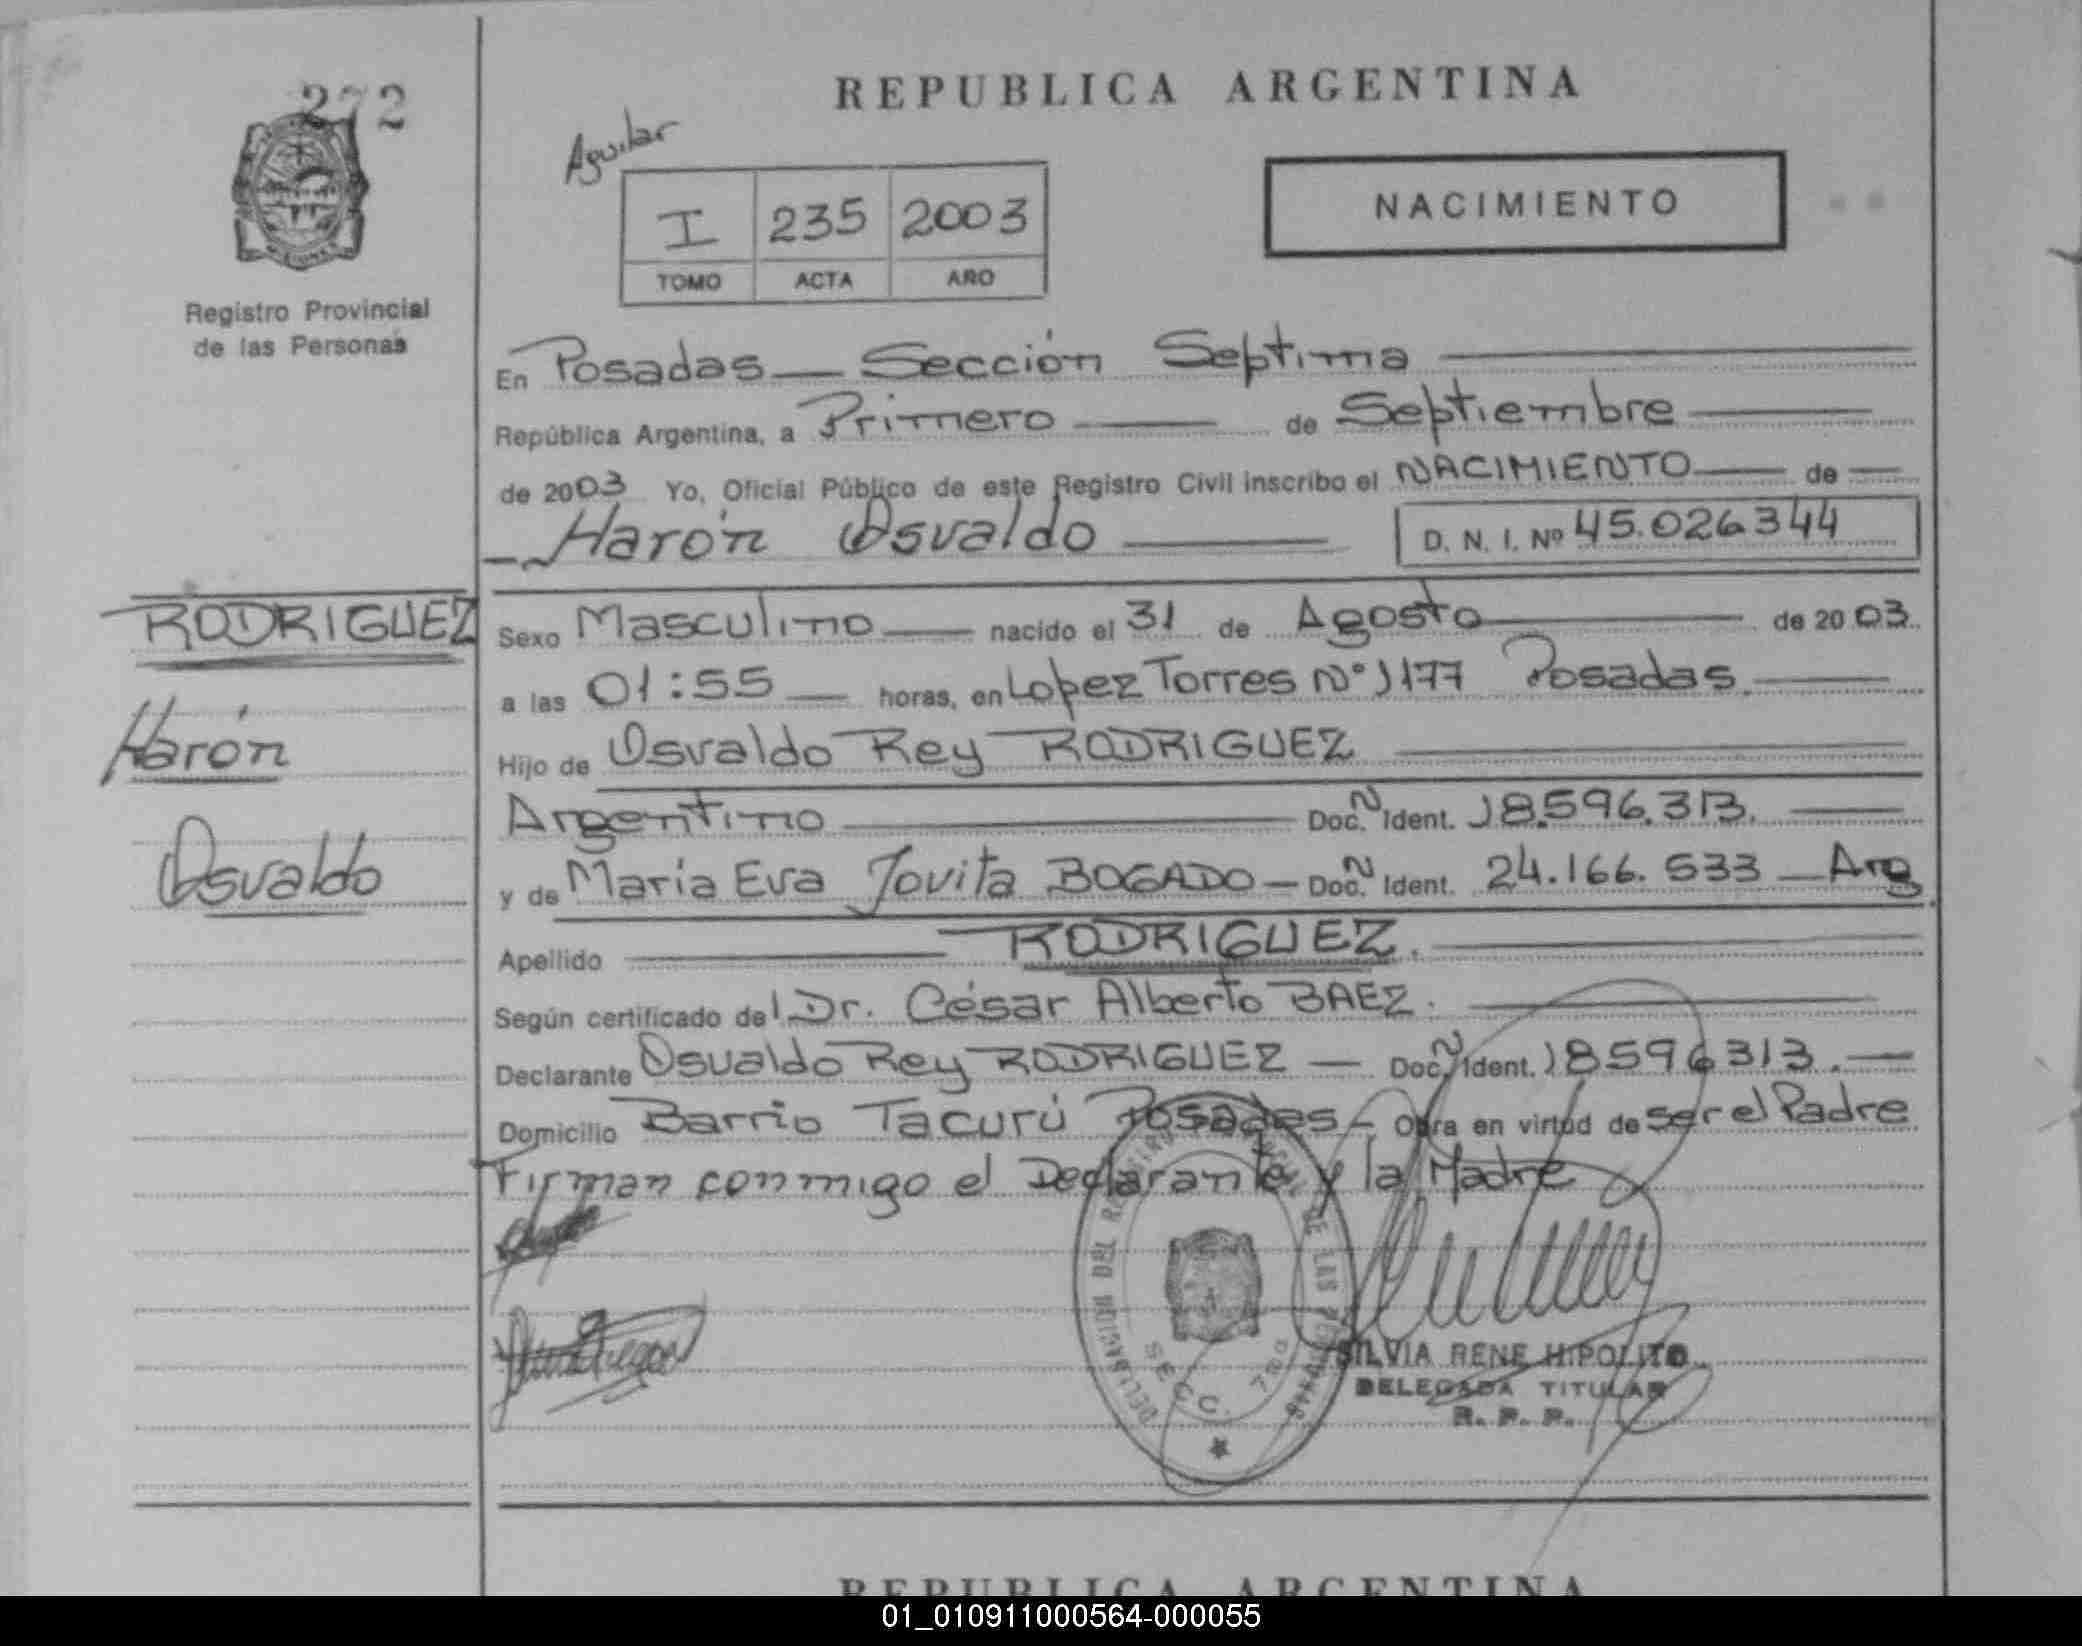 272
REPUBLICA ARGENTINA
Aguilar
I 235 2003
TOMO ACTA AÑO
NACIMIENTO
Registro Provincial
de las Personas
En Posadas — Sección Septima
República Argentina, a Primero de Septiembre
de 2003 Yo, Oficial Público de este Registro Civil inscribo el NACIMIENTO de
Harón Osvaldo D. N. I. Nº 45.026344
RODRIGUEZ
Harón
Osvaldo
Sexo Masculino nacido el 31 de Agosto de 2003.
a las 01:55 horas, en Lopez Torres N° 1177 Posadas.
Hijo de Osvaldo Rey RODRIGUEZ
Argentino Doc. N Ident. 18.596.313.
y de María Eva Jovita BOGADO — Doc. N Ident. 24.166.533 — Arg.
Apellido RODRIGUEZ.
Según certificado del Dr. César Alberto BAEZ.
Declarante Osvaldo Rey RODRIGUEZ — Doc. N Ident. 18596313.
Domicilio Barrio Tacurú Posadas — Obra en virtud de ser el Padre
Firman conmigo el Declarante y la Madre
DELEGACION DEL DE LAS
SECC. 7ma
SILVIA RENE HIPOLITO
DELEGADA TITULAR
R. P. P.
REPUBLICA ARGENTINA
01_010911000564-000055